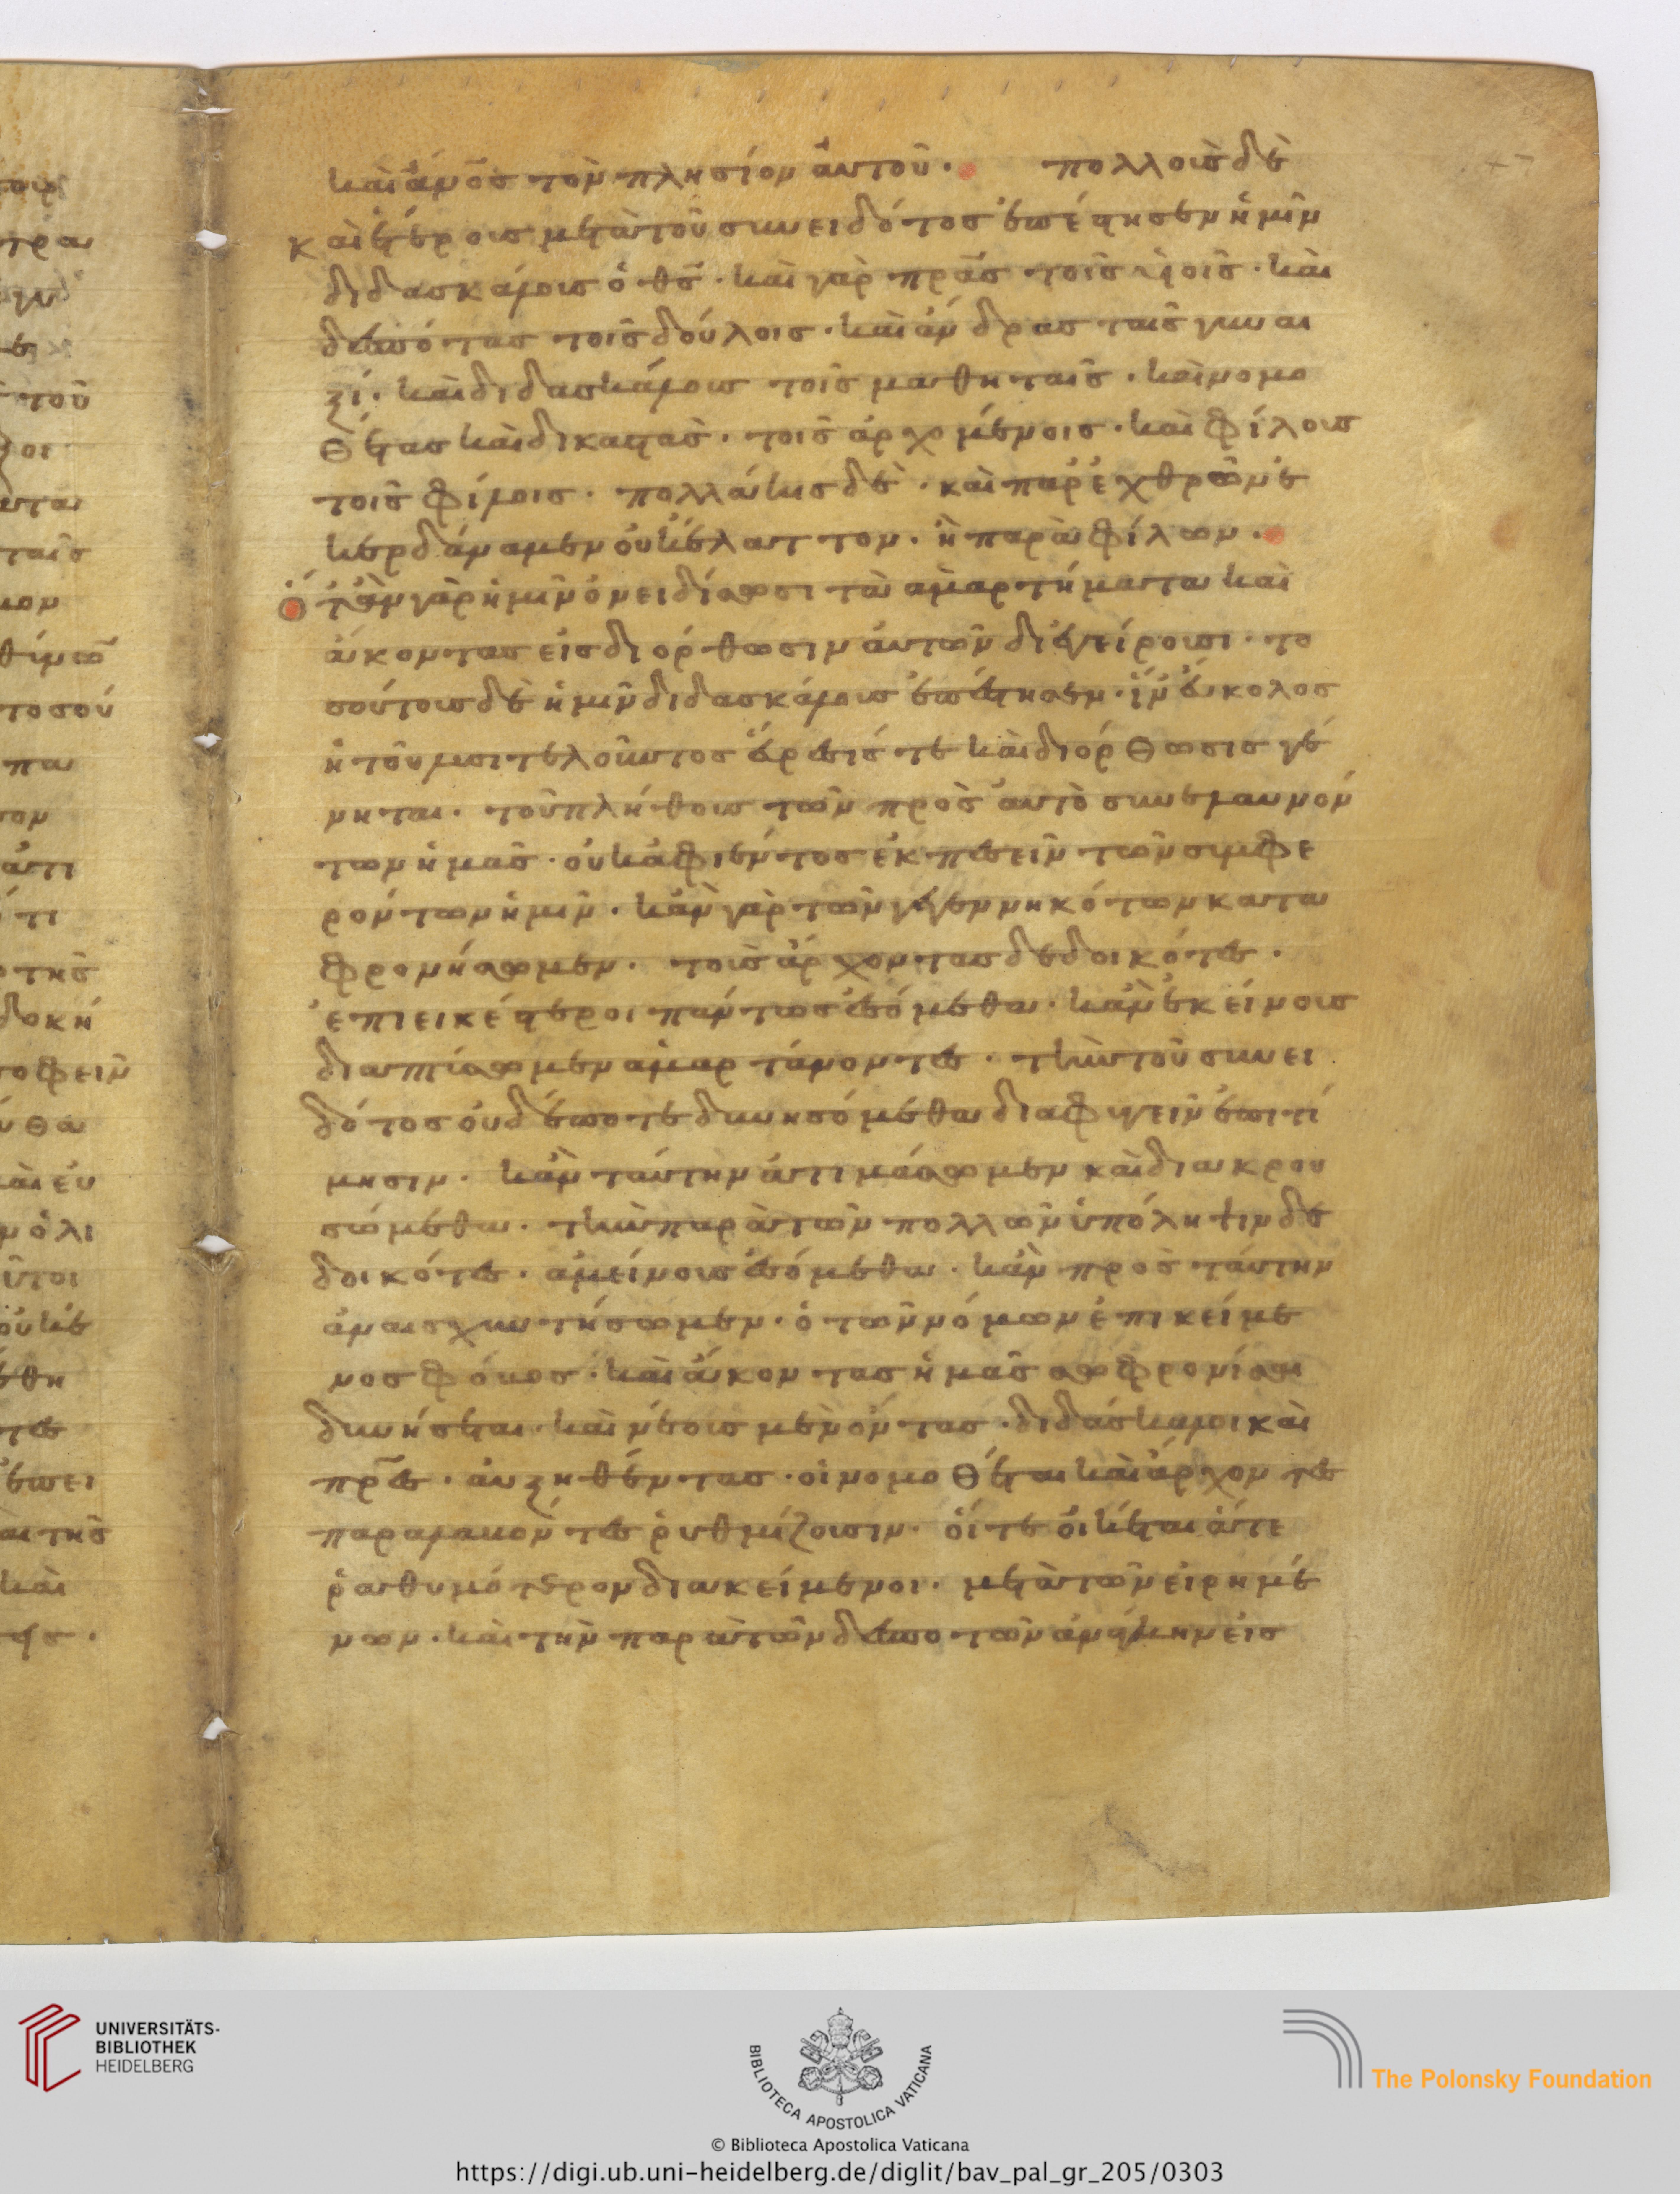 καὶ ἄνος τὸν πλησίον αὐτοῦ · πολλοὺς δὲ
καὶ ἑτέρους μετὰ τοῦ συνειδότος ἐπέστησεν ἡμῖν
διδασκάλους ὁ θς · καὶ γὰρ πρας τοῖς υἱοῖς · καὶ
δεσπότας τοῖς δούλοις · καὶ ἄνδρας ταῖς γυναι
ξί · καὶ διδασκάλους τοῖς μαθηταῖς · καὶ νομο
θέτας καὶ δικαστὰς · τοῖς ἀρχομένοις · καὶ φίλους
τοῖς φίλοις · πολλάκις δὲ · καὶ παρ ἐχθρῶν ἐ
κερδάναμεν οὐκ ἔλαττον · ἢ παρὰ φίλων ·
ὅταν γὰρ ἡμῖν ὀνειδίσωσι τὰ ἁμαρτήματα καὶ
ἄκοντας εἰς διόρθωσιν αὐτῶν διεγείρουσι · το
σούτους δὲ ἡμῖν διδασκάλους ἐπέστησεν · ἵν εὔκολος
ἡ τοῦ λυσιτελοῦντος εὕρεσίς τε καὶ διόρθωσις γέ
νηται · τοῦ πλήθους τῶν πρὸς αὐτὸ συνελαυνόν
των ἡμᾶς · οὐκ ἀφιέντος ἐκπεσεῖν τῶν συμφε
ρόντων ἡμῖν · κἂν γὰρ τῶν γεγεννηκότων κατα
φρονήσωμεν · τοὺς ἄρχοντας δεδοικότες ·
ἐπιεικέστεροι πάντως ἐσόμεθα · κἂν ἐκείνους
διαπτύσωμεν ἁμαρτάνοντες · τὴν τοῦ συνει
δότος οὐδέποτε δυνησόμεθα διαφυγεῖν ἐπιτί
μησιν · κἂν ταύτην ἀτιμάσωμεν καὶ διακρου
σώμεθα · τὴν παρὰ τῶν πολλῶν ὑπόληψιν δε
δοικότες · ἀμείνους ἐσόμεθα · κἂν πρὸς ταύτην
ἀναισχυντήσωμεν · ὁ τῶν νόμων ἐπικείμε
νος φόβος · καὶ ἄκοντας ἡμᾶς σωφρονίσαι
δυνήσεται · καὶ νέους μὲν ὄντας · διδάσκαλοι καὶ
πρες · αὐξηθέντας · οἱ νομοθέται καὶ ἄρχοντες
παραλαβόντες ῥυθμίζουσιν · οἵ τε οἰκέται ἅτε
ῥαθυμότερον διακείμενοι · μετὰ τῶν εἰρημέ
νων · καὶ τὴν παρὰ τῶν δεσποτῶν ἀνάγκην εἰς
UNIVERSITÄTS-
BIBLIOTHEK
HEIDELBERG
BIBLIOTECA APOSTOLICA VATICANA
The Polonsky Foundation
© Biblioteca Apostolica Vaticana
https://digi.ub.uni-heidelberg.de/diglit/bav_pal_gr_205/0303